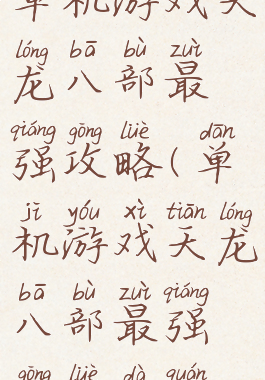 单机游戏天
lóng bā bù zuì
龙八部最
qiáng gōng lüè dān
强攻略(单
jī yóu xì tiān lóng
机游戏天龙
bā bù zuì qiáng
八部最强
gōng lüè dà quán